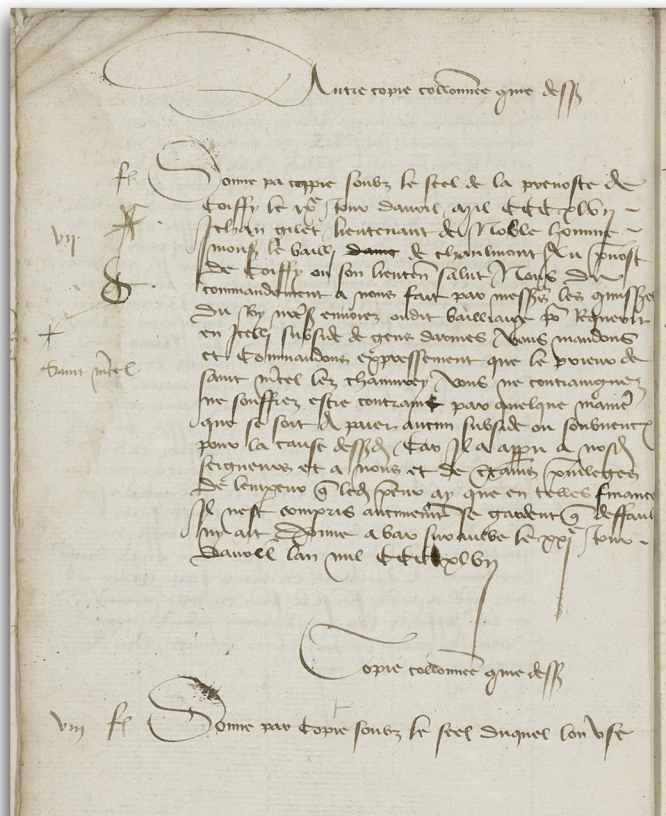 Autre copie collationnee comme dess
fo Donne par coppie soubz le seel de la prevoste de
Coiffy le xxe jour davril mil CCCC xlvii
vii Jehan Gilet lieutenant de Noble homme
mons le bailli de chaulmont Au prevost
de Coiffy ou son lieuten salut Nous du
commandement a nous fait par mess les commiss
du Roy nres envoiez oudit bailliaige pour Recevoir
en Icelui subside de gens darmes Vous mandons
Saint m̃cel
et Commandons expressement que le prieur de
saint m̃cel lez chauvirey Vous ne contraignez
ne souffrez estre contraint par quelque maniere
que se soit A paier aucun subside ou souvent
pour la cause dessusd Car Il a apparu a nosd
seigneurs et a nous et de certains privileges
de lempereur led prieur ay que en telles finance
Il nest compris aucunement Se gardent que deffault
ny ait Donne a bar sur aulbe le xxie jour
davril lan mil CCCC xlvii
Copie collationnee comme dess
viii fo Donne par Copie soubz le seel duquel lon use